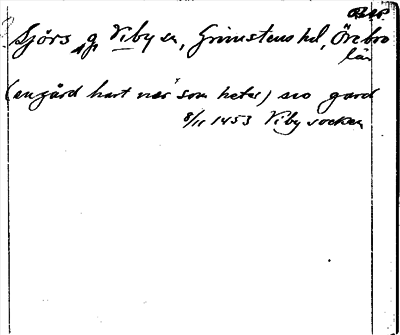 Sjörs g Viby sn, Grimstens hd, Örebro
län
(en gård hart när som heter) sio gard
8/11 1453 Viby socken